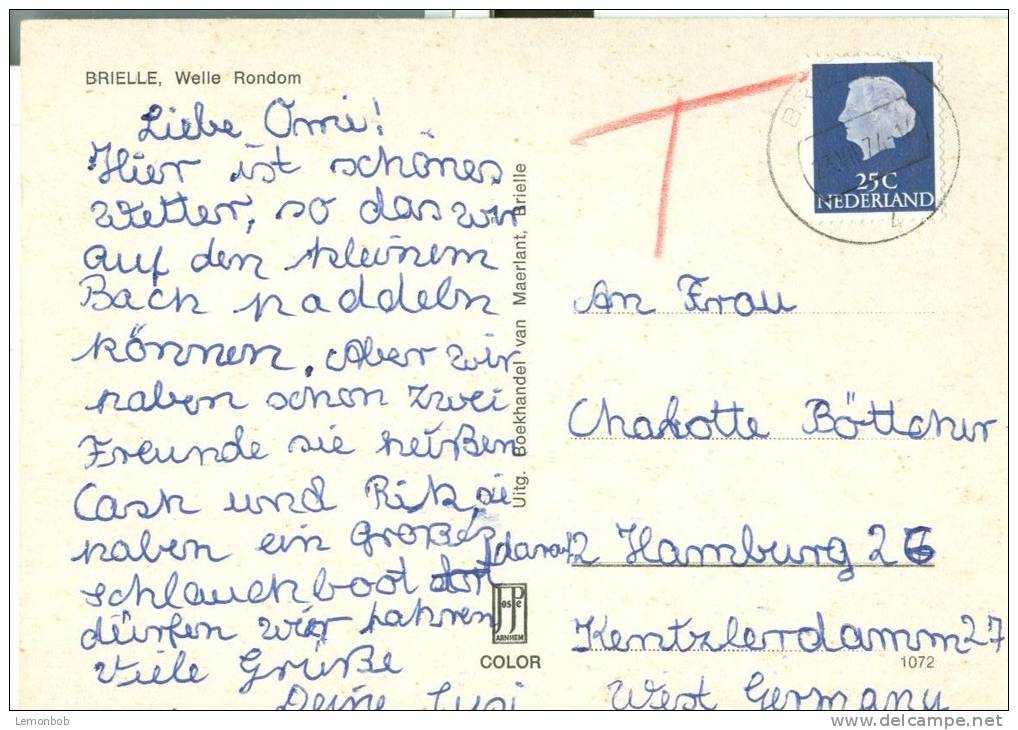 BRIELLE, Welle Rondom
Liebe Omi!
Hier ist schönes
Wetter, so das wir
auf den kleinem
Bach paddeln
können. Aber wir
haben schon zwei
Freunde sie heißen
Cash und Rik, die
haben ein großes
schlauchboot darauf
dürfen wir fahren
Viele Grüße
Deine Susi
Uitg. Boekhandel van Maerlant, Brielle
T
25C
NEDERLAND
4
An Frau
Chalotte Böttcher
2 Hamburg 26
Kentzlerdamm 27
West Germany
JosPé
ARNHEM
COLOR
1072
Lemonbob
delcampe.net